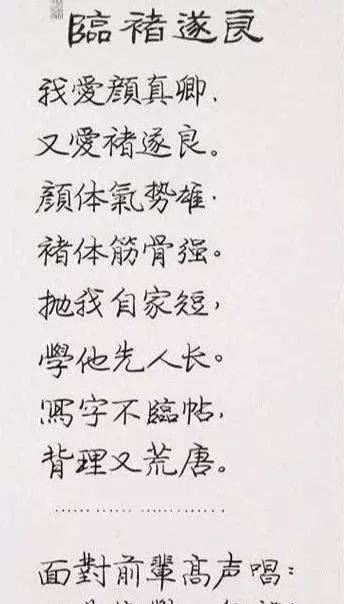 臨褚遂良
我愛顔真卿．
又愛褚遂良。
顔体氣势雄．
褚体筋骨强。
抛我自家短，
學他先人长。
寫字不臨帖．
背理又荒唐。
……………
面對前輩高声唱：